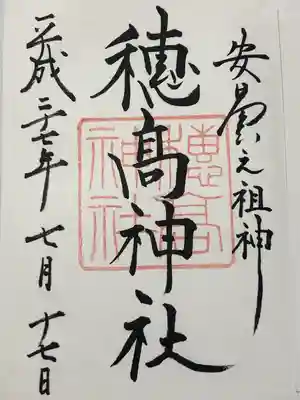 安曇之祖神
穗髙神社
平成二十七年七月十七日
穗高
神社